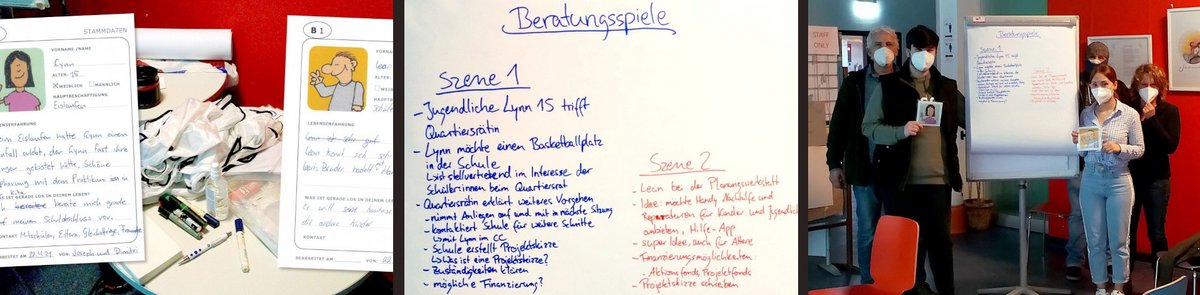 STAMMDATEN
VORNAME / NAME
Lynn
ALTER:
15
WEIBLICH
MÄNNLICH
HAUPTBESCHÄFTIGUNG
Eislaufen
LEBENSERFAHRUNG
Eislaufen hatte Lynn einen
der Lynn fast ihre
gekostet hätte, Schöne
mit dem Praktikum
Kita
WAS IST GERADE LOS IN DEINEM LEBEN?
bereite mich grade
auf meinen Schulabschluss vor.
KONTAKT Mitschüler, Eltern, Gleichaltrige, Freunde
BEARBEITET AM 22.4.21 VON: Joseph und Dimitri
B I
VORNAME / NAME
Leon
ALTER:
WEIBLICH
HAUPTBESCHÄFTIGUNG
LEBENSERFAHRUNG
Leon kennt sich
Leons Bruder
WAS IST GERADE LOS IN DEINEM LEBEN?
Er will seine
die andere
KONTAKT
BEARBEITET AM 22.
Beratungsspiele
Szene 1
- Jugendliche Lynn 15 trifft
Quartiersrätin
- Lynn möchte einen Basketballplatz
in der Schule
↳ist stellvertretend im Interesse der
Schüler:innen beim Quartiersrat
- Quartiersrätin erklärt weiteres Vorgehen
- nimmt Anliegen auf und mit in nächste Sitzung
- kontaktiert Schule für weitere Schritte
↳ mit Lynn im CC
- Schule erstellt Projektskizze
↳ Was ist eine Projektskizze?
- Zuständigkeiten klären
- mögliche Finanzierung?
Szene 2
- Leon bei der Planungswerkstatt
- Idee: möchte Handy Nachhilfe und
Reparaturen für Kinder und Jugendliche
anbieten, Hilfe-App
- super Idee, auch für Ältere
- Finanzierungsmöglichkeiten:
- Aktionsfonds, Projektfonds
- Projektskizze schreiben
STAFF
ONLY
Beratungsspiele
Szene 1